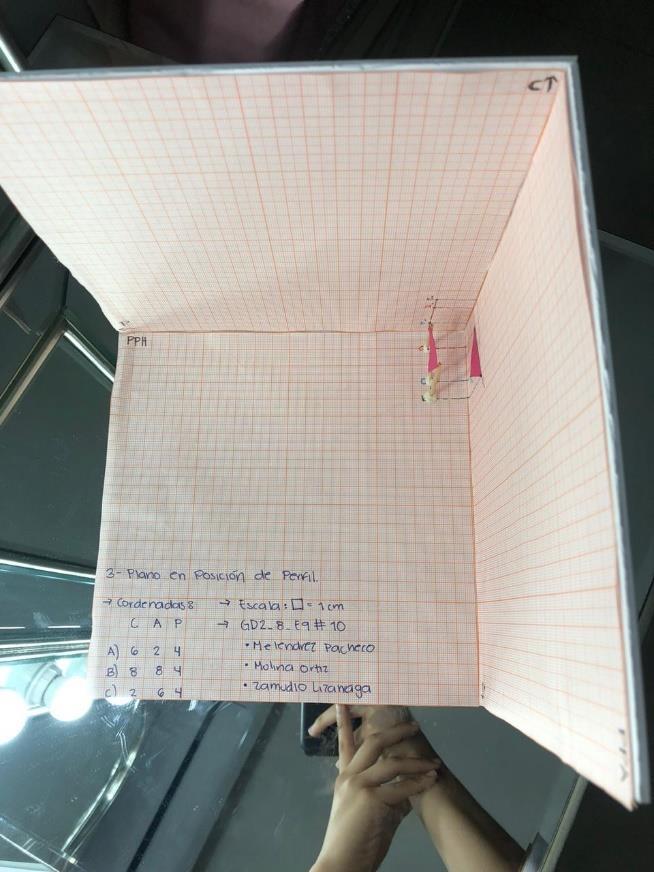 CT
PPH
3- Plano en Posición de Perfil.
→ Cordenadas: → Escala: □ = 1 cm
C A P → GD2_8_E9 # 10
A) 6 2 4 • Melendrez Pacheco
B) 8 8 4 • Molina Ortiz
C) 2 6 4 • Zamudio Lizanaga